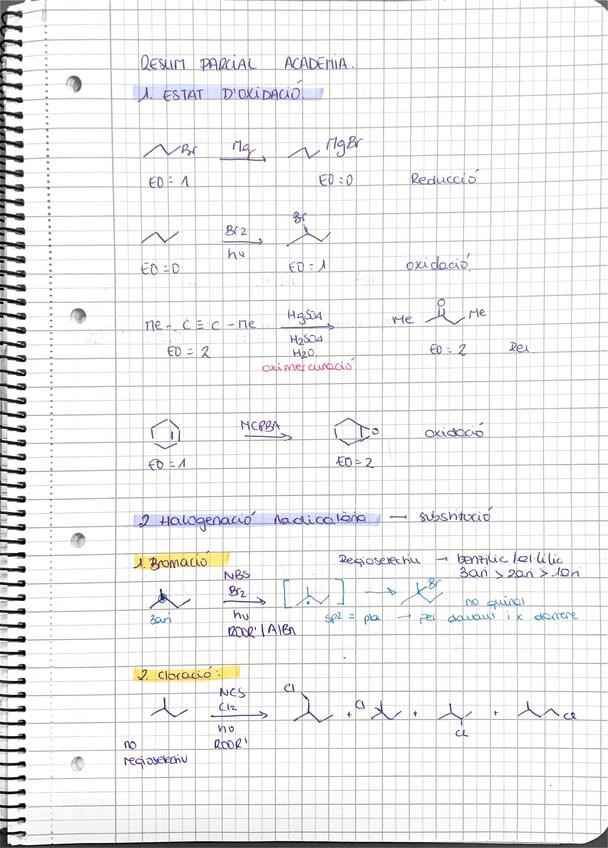 RESUM PARCIAL ACADEMIA.
1. ESTAT D'OXIDACIÓ.
Br Mg MgBr
EO = 1 EO = 0 Reducció
Br2 Br
hν
EO = 0 EO = 1 oxidació
Me - C ≡ C - Me HgSO4 Me O Me
H2SO4
H2O
EO = 2 EO = 2
oximercuriació
MCPBA O oxidació
EO = 1 EO = 2
2 Halogenació Radicalària — substitució
1. Bromació Regioselectiu → benzílic / al·lílic
3ari > 2ari > 1ari
NBS
Br2 Br
hν no quiral
3ari sp2 = pla → per davant i x darrere
ROOR' / AIBN
2. Cloració:
NCS Cl
Cl2 + Cl + + Cl
hν Cl
no ROOR'
regioselectiu